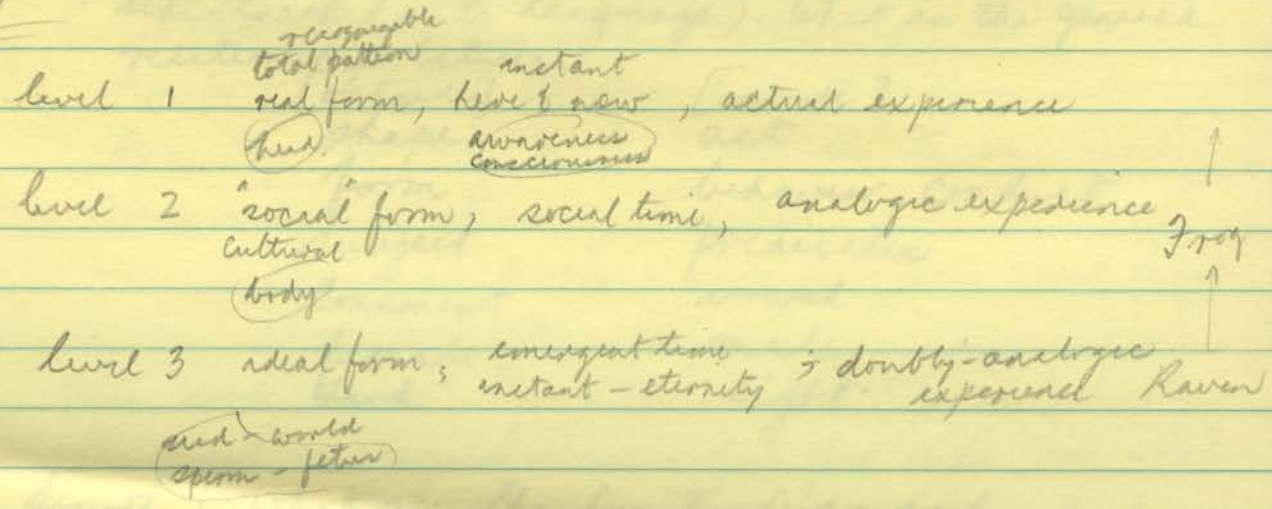 recognizable
total pattern instant
level 1 real form, here & now, actual experience
head awareness
consciousness
level 2 "social" form, social time, analogic experience
Frog
cultural
body
level 3 ideal form; emergent time ; doubly-analogic
instant - eternity experience Raven
seed - world
sperm - fetus